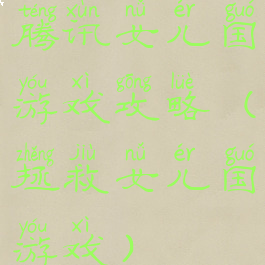 téng xùn nǚ ér guó
腾讯女儿国
yóu xì gōng lüè
游戏攻略（
zhěng jiù nǚ ér guó
拯救女儿国
yóu xì
游戏）